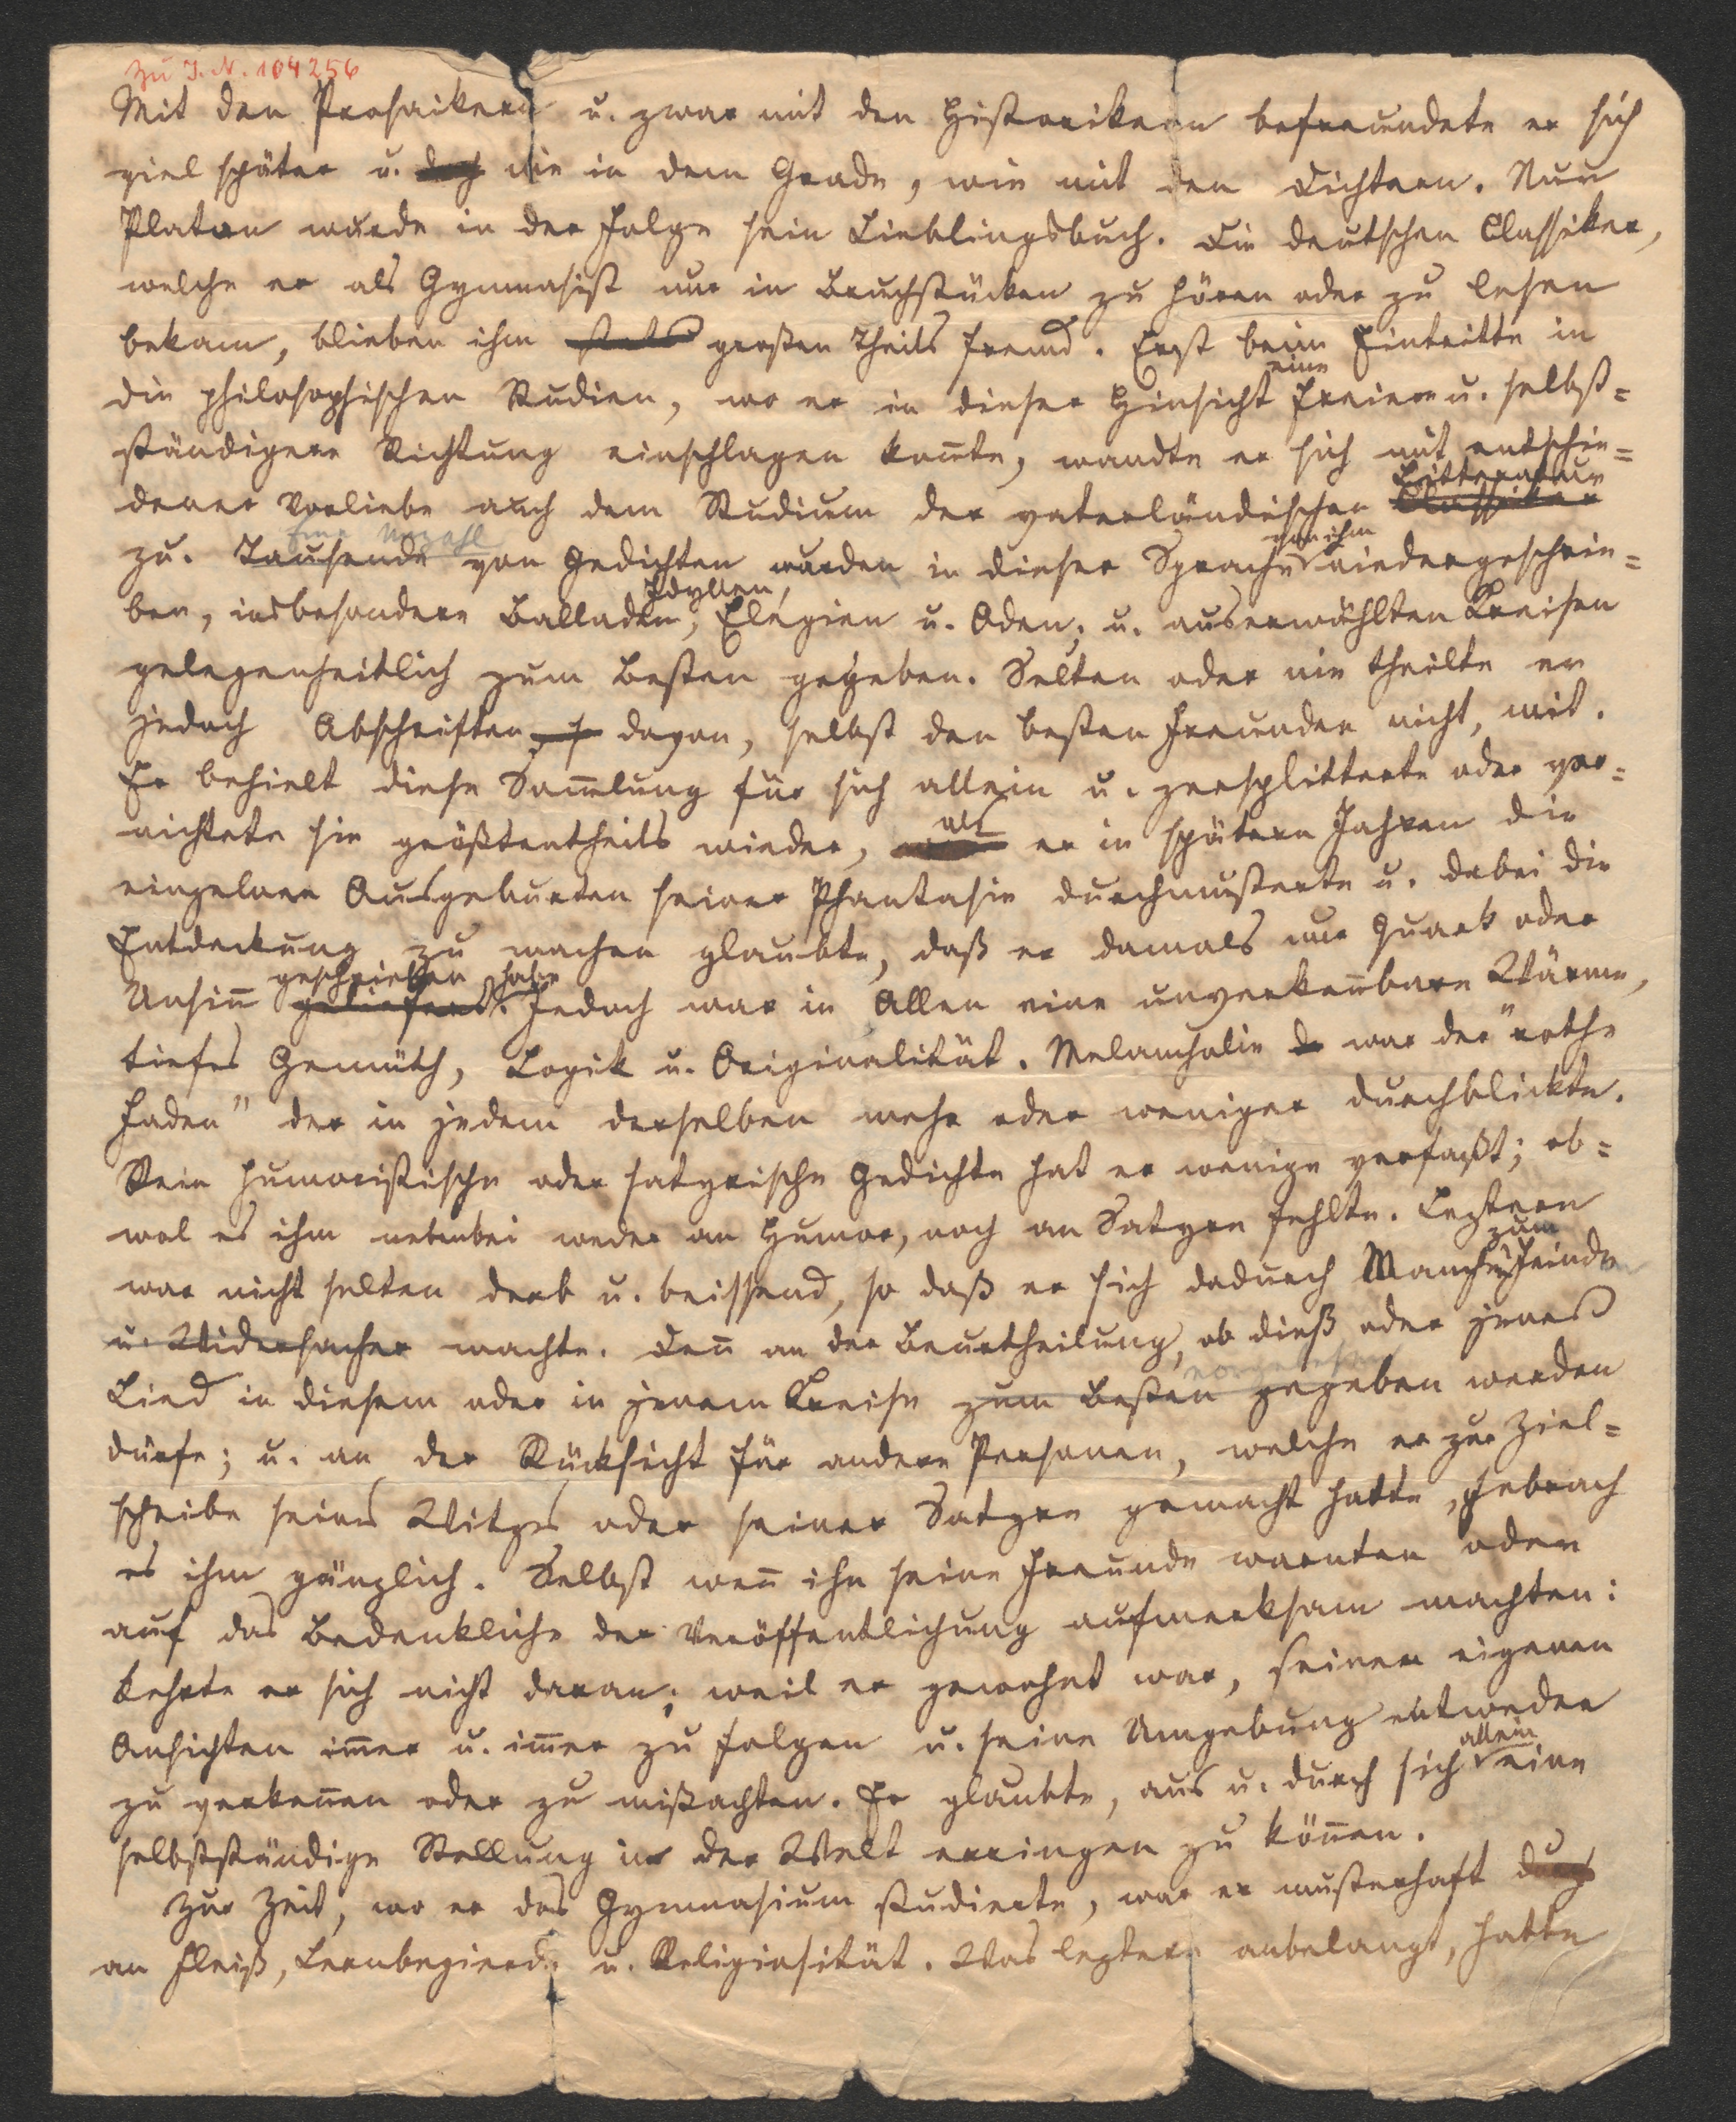 Zu J. N. 104256
Mit den Prosaikern u. zwar mit den Historikern befreundete er sich
viel später u. doch nie in dem Grade, wie mit den Dichtern. Nur
Platon wurde in der Folge sein Lieblingsbuch. Die deutschen Classiker,
welche er als Gymnasist nur in Bruchstücken zu hören oder zu lesen
bekam, blieben ihm stets großen Theils fremd. Erst beim Eintritte in
eine
die philosophischen Studien, wo er in dieser Hinsicht freiere u. selbst=
ständigere Richtung einschlagen kon̄te, wandte er sich mit entschie=
Litteratur
dener Vorliebe auch dem Studium der vaterländischen Classiker
Eine Unzahl von ihm
zu. Tausende von Gedichten wurden in dieser Sprache niedergeschrie=
Idyllen,
ben, insbesondere Balladen, Elegien u. Oden; u. auserwählten Kreisen
gelegenheitlich zum Besten gegeben. Selten oder nie theilte er
jedoch Abschriften davon, selbst den besten Freunden nicht, mit.
Er behielt diese Sam̄lung für sich allein u. zersplitterte oder ver=
als
nichtete sie größtentheils wieder, er in spätern Jahren die
einzelnen Ausgeburten seiner Phantasie durchmusterte u. dabei die
Entdeckung zu machen glaubte, daß er damals nur Quark oder
geschrieben habe
Unsin̄ geliefert. Jedoch war in Allen eine unverken̄bare Wärme,
tiefes Gemüth, Logik u. Originalität. Melancholie war der "rothe
Faden" der in jedem derselben mehr oder weniger durchblickte.
Rein humoristische oder satyrische Gedichte hat er wenige verfaßt; ob=
wol es ihm nebenbei weder an Humor, noch an Satyre fehlte. Leztere
zum
war nicht selten derb u. beissend, so daß er sich dadurch Manchen Feinde
u. Widersacher machte. Den̄ an der Beurtheilung, ob dieß oder jenes
vorgelesen
Lied in diesem oder in jenem Kreise zum Besten gegeben werden
dürfe; u. an der Rücksicht für andere Personen, welche er zur Ziel=
scheibe seines Witzes oder seiner Satyre gemacht hatte, gebrach
es ihm gänzlich. Selbst wen̄ ihn seine Freunde warnten oder
auf das Bedenkliche der Veröffentlichung aufmerksam machten:
kehrte er sich nicht daran; weil er gewohnt war, seinen eigenen
Ansichten im̄er u. im̄er zu folgen u. seine Umgebung entweder
allein
zu verken̄en oder zu mißachten. Er glaubte, aus u. durch sich eine
selbstständige Stellung in der Welt erringen zu kön̄en.
Zur Zeit, wo er das Gymnasium studierte, war er musterhaft durch
an Fleiß, Lernbegierde u. Religiosität. Was leztere anbelangt, hatte